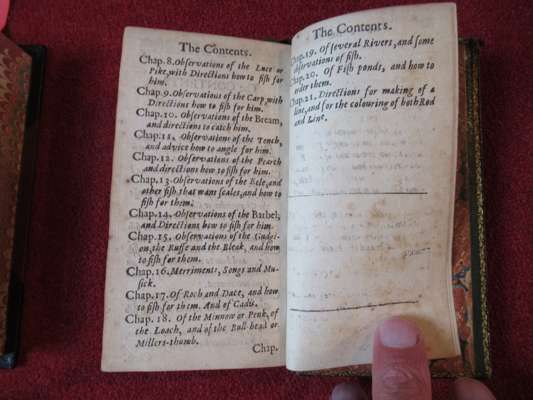 The Contents.
Chap. 8. Obſervations of the Luce or
Pike, with Directions how to fiſh for
him.
Chap. 9. Obſervations of the Carp, with
Directions how to fiſh for him.
Chap. 10. Obſervations of the Bream,
and directions to catch him.
Chap. 11. Obſervations of the Tench,
and advice how to angle for him.
Chap. 12. Obſervations of the Pearch
and directions how to fiſh for him.
Chap. 13. Obſervations of the Eele, and
other fiſh that want ſcales, and how to
fiſh for them.
Chap. 14. Obſervations of the Barbel,
and Directions how to fiſh for him.
Chap. 15. Obſervations of the Gudge-
on, the Ruffe and the Bleak, and how
to fiſh for them.
Chap. 16. Merriments, Songs and Mu-
ſick.
Chap. 17. Of Roch and Dace, and how
to fiſh for them. And of Cadis.
Chap. 18. Of the Minnow or Penk, of
the Loach, and of the Bull-head or
Millers-thumb.
Chap.
The Contents.
Chap. 19. Of ſeveral Rivers, and ſome
obſervations of fiſh.
Chap. 20. Of Fiſh ponds, and how to
order them.
Chap. 21. Directions for making of a
line, and for the colouring of both Rod
and Line.